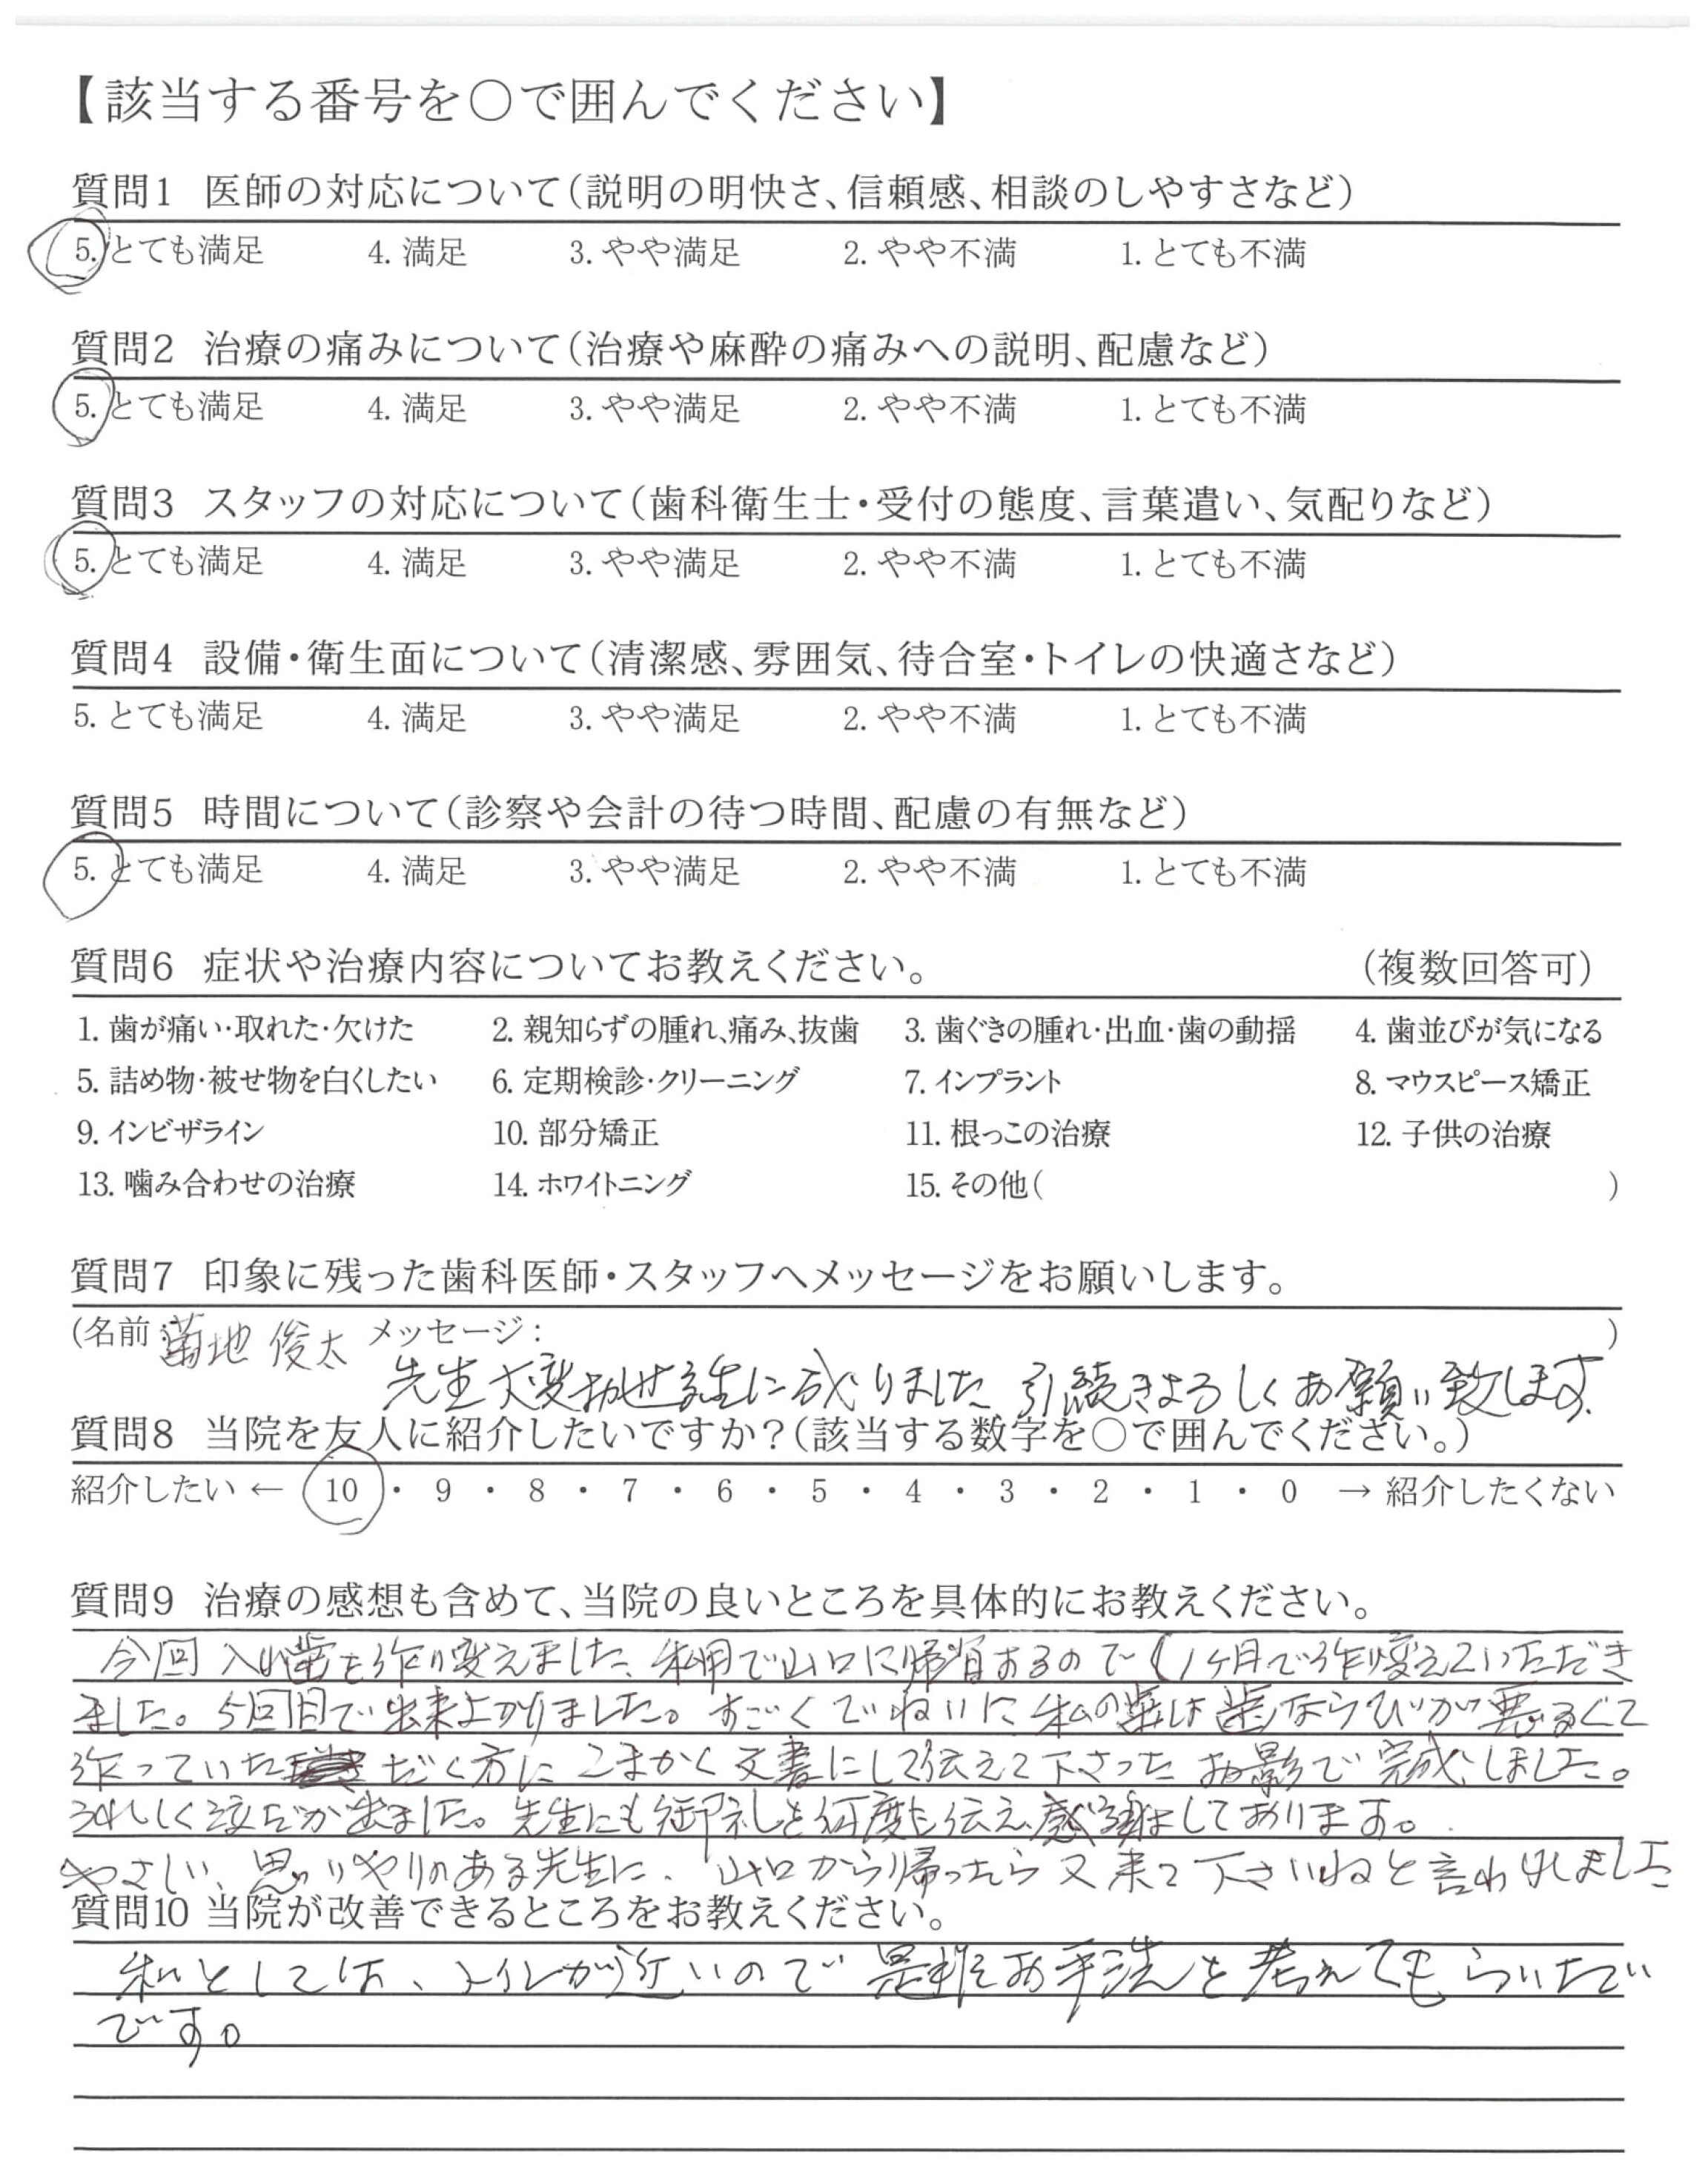 【該当する番号を○で囲んでください】
質問1 医師の対応について(説明の明快さ、信頼感、相談のしやすさなど)
5. とても満足 4. 満足 3. やや満足 2. やや不満 1. とても不満
質問2 治療の痛みについて(治療や麻酔の痛みへの説明、配慮など)
5. とても満足 4. 満足 3. やや満足 2. やや不満 1. とても不満
質問3 スタッフの対応について(歯科衛生士・受付の態度、言葉遣い、気配りなど)
5. とても満足 4. 満足 3. やや満足 2. やや不満 1. とても不満
質問4 設備・衛生面について(清潔感、雰囲気、待合室・トイレの快適さなど)
5. とても満足 4. 満足 3. やや満足 2. やや不満 1. とても不満
質問5 時間について(診察や会計の待つ時間、配慮の有無など)
5. とても満足 4. 満足 3. やや満足 2. やや不満 1. とても不満
質問6 症状や治療内容についてお教えください。 (複数回答可)
1. 歯が痛い・取れた・欠けた 2. 親知らずの腫れ、痛み、抜歯 3. 歯ぐきの腫れ・出血・歯の動揺 4. 歯並びが気になる
5. 詰め物・被せ物を白くしたい 6. 定期検診・クリーニング 7. インプラント 8. マウスピース矯正
9. インビザライン 10. 部分矯正 11. 根っこの治療 12. 子供の治療
13. 噛み合わせの治療 14. ホワイトニング 15. その他( )
質問7 印象に残った歯科医師・スタッフへメッセージをお願いします。
(名前: 菊地 俊太 メッセージ: )
先生大変お世話に成りました 引続きよろしくお願い致します
質問8 当院を友人に紹介したいですか?(該当する数字を○で囲んでください。)
紹介したい ← 10 ・ 9 ・ 8 ・ 7 ・ 6 ・ 5 ・ 4 ・ 3 ・ 2 ・ 1 ・ 0 → 紹介したくない
質問9 治療の感想も含めて、当院の良いところを具体的にお教えください。
今回入れ歯を作り変えました、私用で山口に帰省するので 1ヶ月で作り変えていただき
ました。5回目で出来上がりました。すごくていねいに私の歯は歯ならびが悪るくて
作っていただく方にこまかく文書にして伝えて下さったお影で完成しました。
うれしく涙だか出ました。先生にも御礼しと何度も伝え、感謝しております。
やさしい、思いやりのある先生に、山口から帰ったら又来て下さいねと言われました
質問10 当院が改善できるところをお教えください。
私としては、トイレが近いので是非お手洗を考えてもらいたい
です。